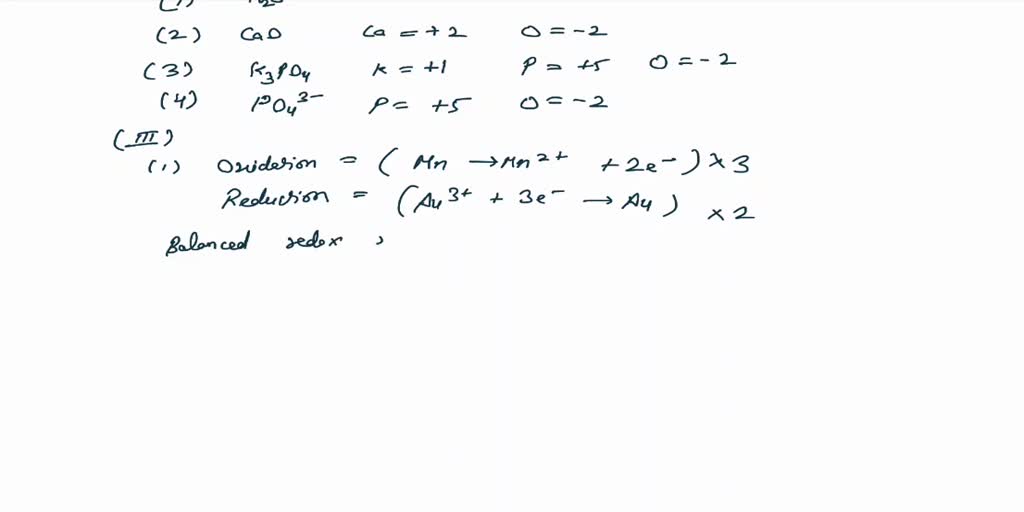 (2) CaO Ca = +2 O = -2
(3) K3PO4 K = +1 P = +5 O = -2
(4) PO4³⁻ P = +5 O = -2
(III)
(1) Oxidation = ( Mn → Mn²⁺ + 2e⁻ ) × 3
Reduction = ( Au³⁺ + 3e⁻ → Au ) × 2
Balanced redox